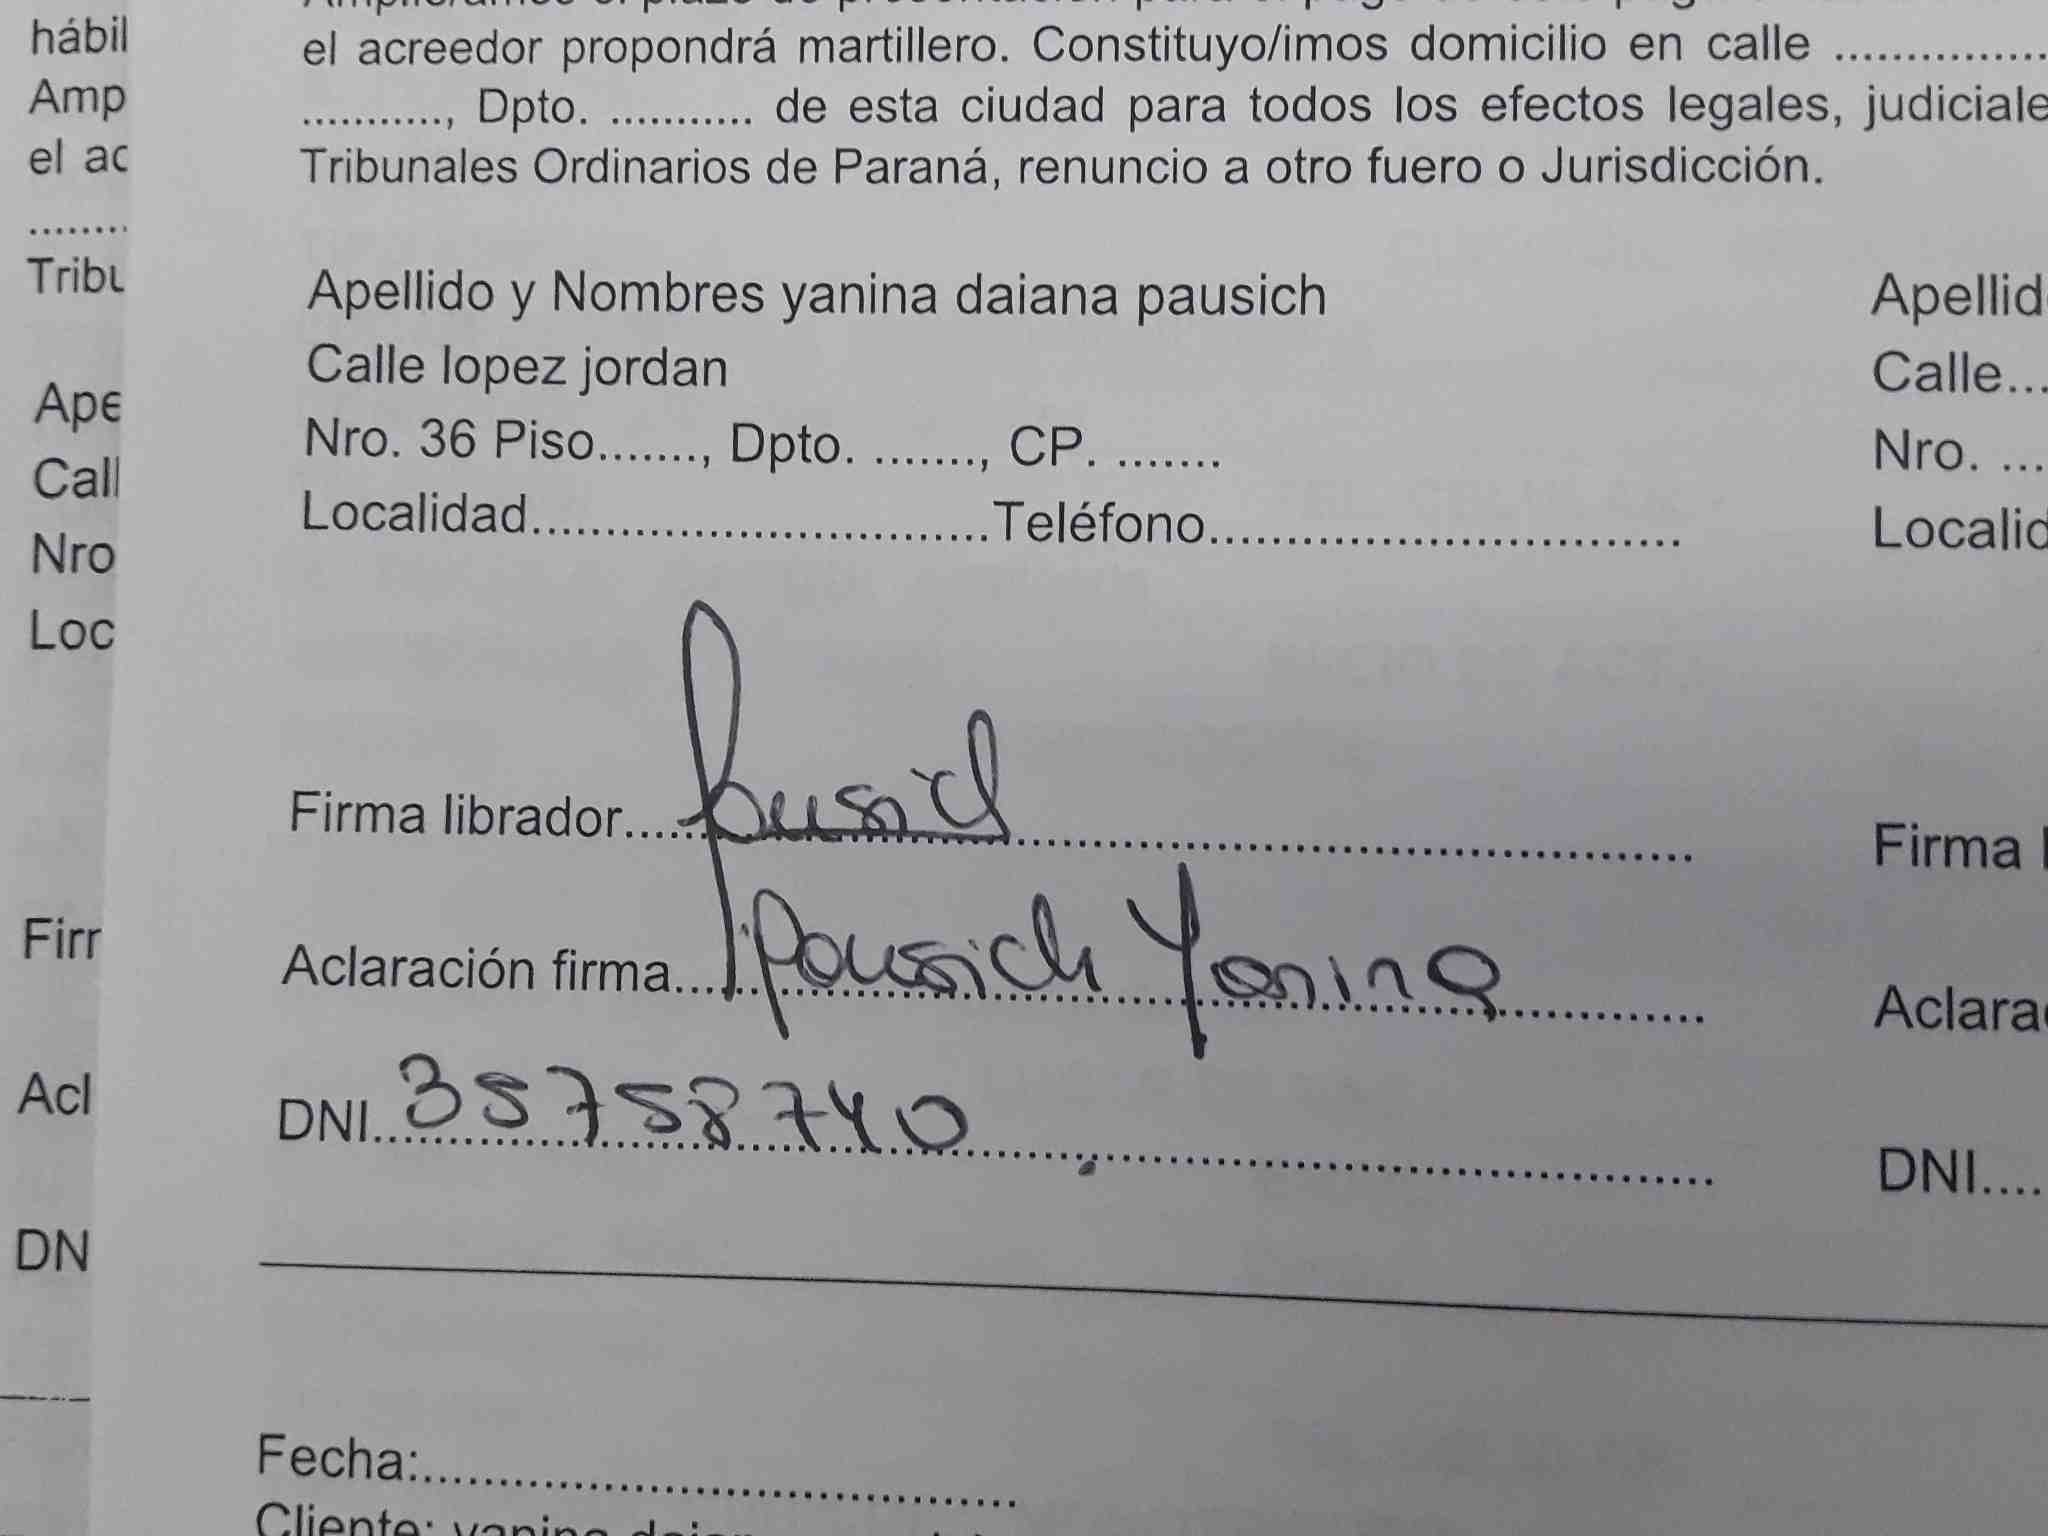 hábil
Amp
el ac
........
Tribu
Ape
Call
Nro
Loc
Firr
Acl
DN
el acreedor propondrá martillero. Constituyo/imos domicilio en calle ...............
..........., Dpto. ........... de esta ciudad para todos los efectos legales, judiciale
Tribunales Ordinarios de Paraná, renuncio a otro fuero o Jurisdicción.
Apellido y Nombres yanina daiana pausich
Calle lopez jordan
Nro. 36 Piso......., Dpto. ......., CP. .......
Localidad..............................Teléfono...............................
Firma librador..... Pausich
Aclaración firma..... Pausich Yanina
DNI. 35758740
Fecha:.......................................
Cliente: yanina daian
Apellido
Calle...
Nro. ...
Localid
Firma l
Aclarac
DNI....